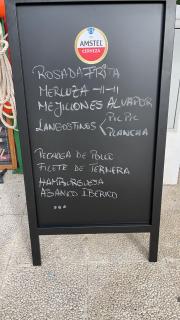 AMSTEL
CERVEZA
ROSADA FRITA
MERLUZA -11-11
MEJILLONES AL VAPOR
LANGOSTINOS < PIL PIL
PLANCHA
PECHUGA DE POLLO
FILETE DE TERNERA
HAMBURGUESA
ABANICO IBÉRICO
...